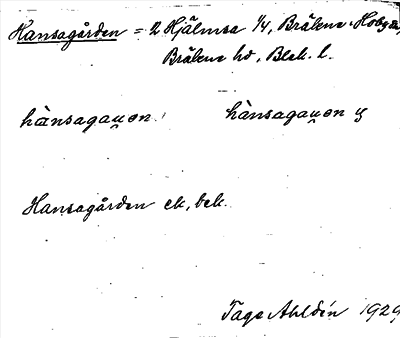 Hansagården = 2 Hjälmsa 1/4, Bräkne-Hoby sn,
Bräkne hd, Blek. l.
hànsagau̯ən. hànsagau̯ən ɥ
Hansagården ek, bek.
Tage Ahldén 1929